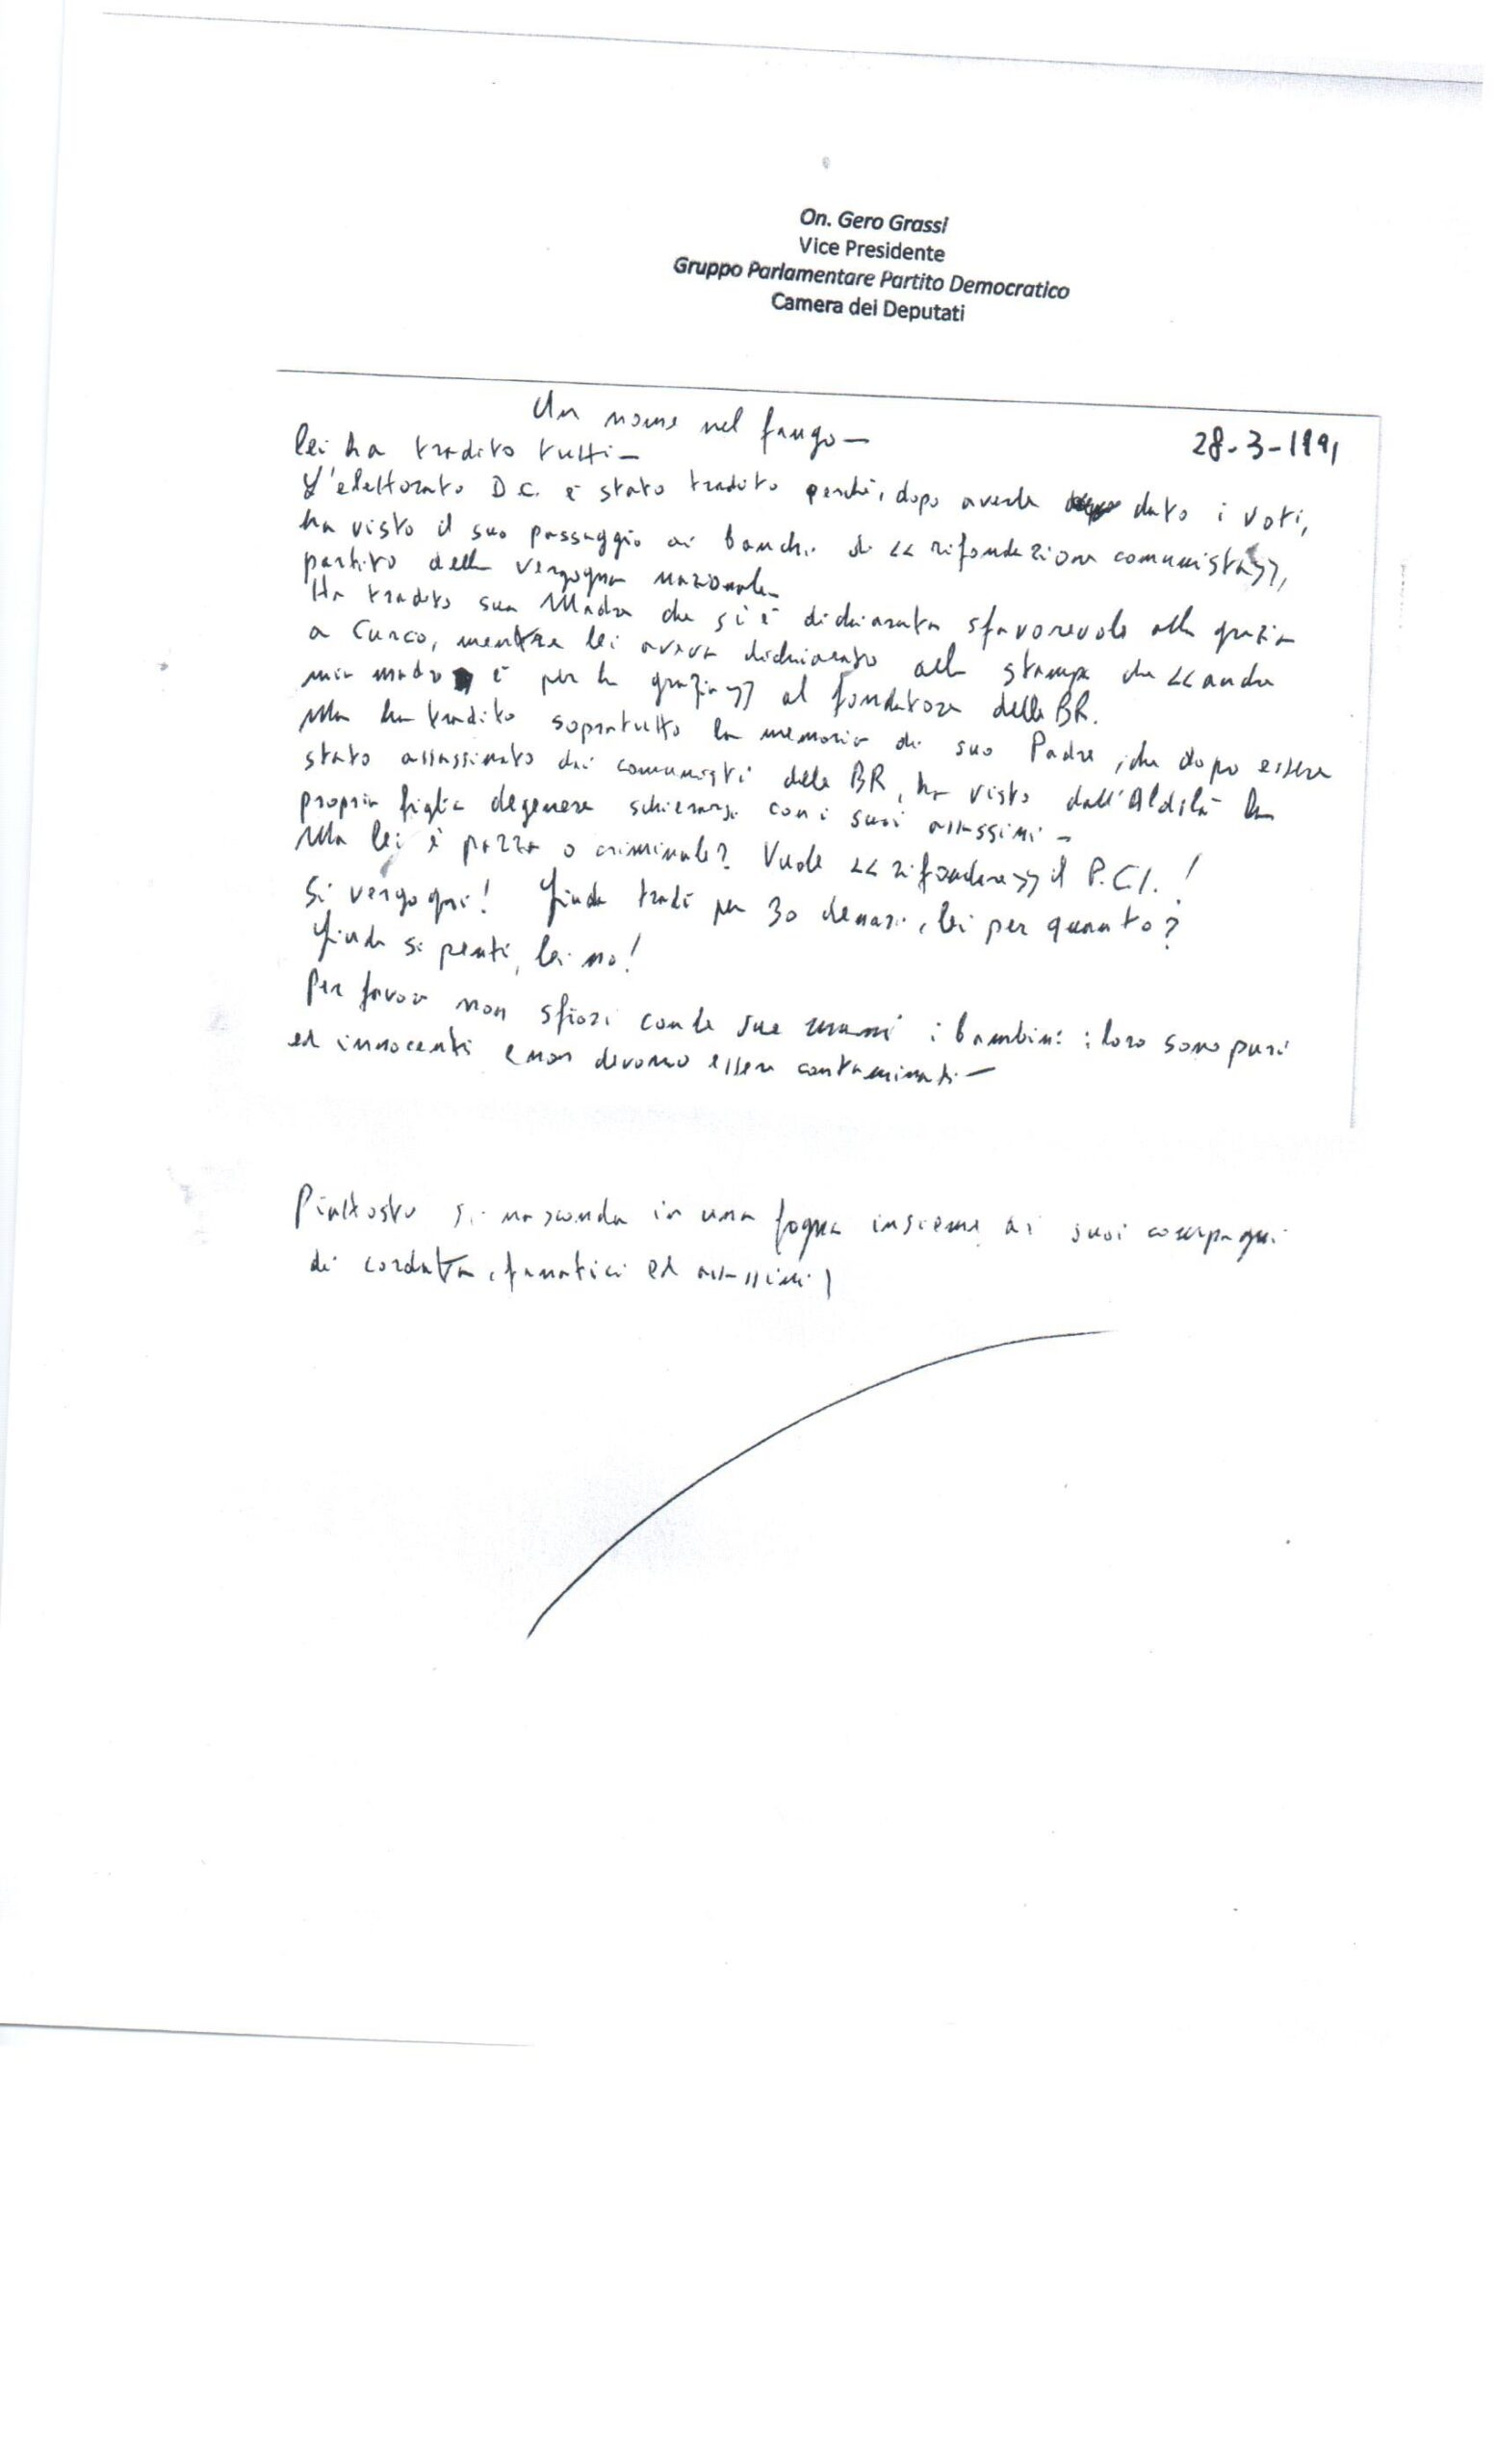 On. Gero Grassi
Vice Presidente
Gruppo Parlamentare Partito Democratico
Camera dei Deputati
Un nome nel fango —
28-3-1991
lei ha tradito tutti —
L'elettorato D.C. è stato tradito perché, dopo averle dato i voti,
ha visto il suo passaggio ai banchi di << rifondazione comunista>>,
partito della vergogna nazionale.
Ha tradito sua Madre che si è dichiarata sfavorevole alla grazia
a Curco, mentre lei aveva dichiarato alla stampa che <<anche
mia madre è per la grazia>> al fondatore delle BR.
Ma ha tradito sopratutto la memoria di suo Padre, che dopo essere
stato assassinato dai comunisti delle BR, ha visto dall'Aldilà la
propria figlia degenere schierarsi con i suoi assassini —
Ma lei è pazza o criminale? Vuole << rifondare>> il P.C.I. !
Si vergogni! Giuda tradì per 30 denari, lei per quanto?
Giuda si pentì, lei no!
Per favore non sfiori con le sue mani i bambini: loro sono puri
ed innocenti e non devono essere contaminati —
Piuttosto si nasconda in una fogna insieme ai suoi compagni
di cordata, fanatici ed assassini!